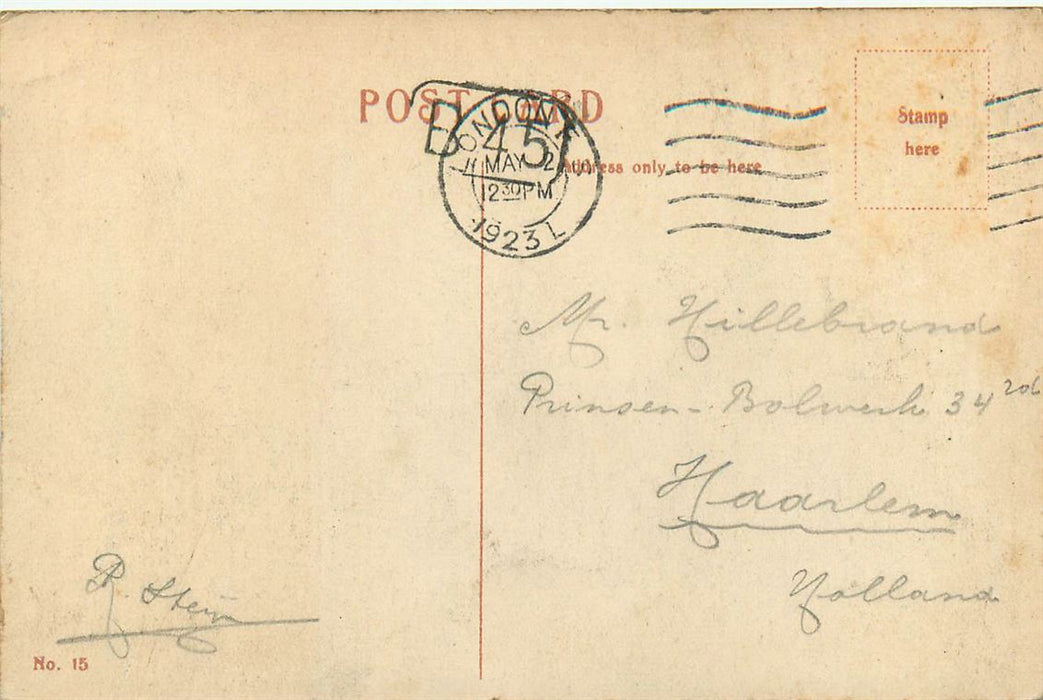 POST CARD
B 45
LONDON
MAY 2
12 30 PM
1923 L
Address only to be here
Stamp
here
Mr. Hillebrand
Prinsen-Bolwerk 34 rd
Haarlem
Holland
No. 15